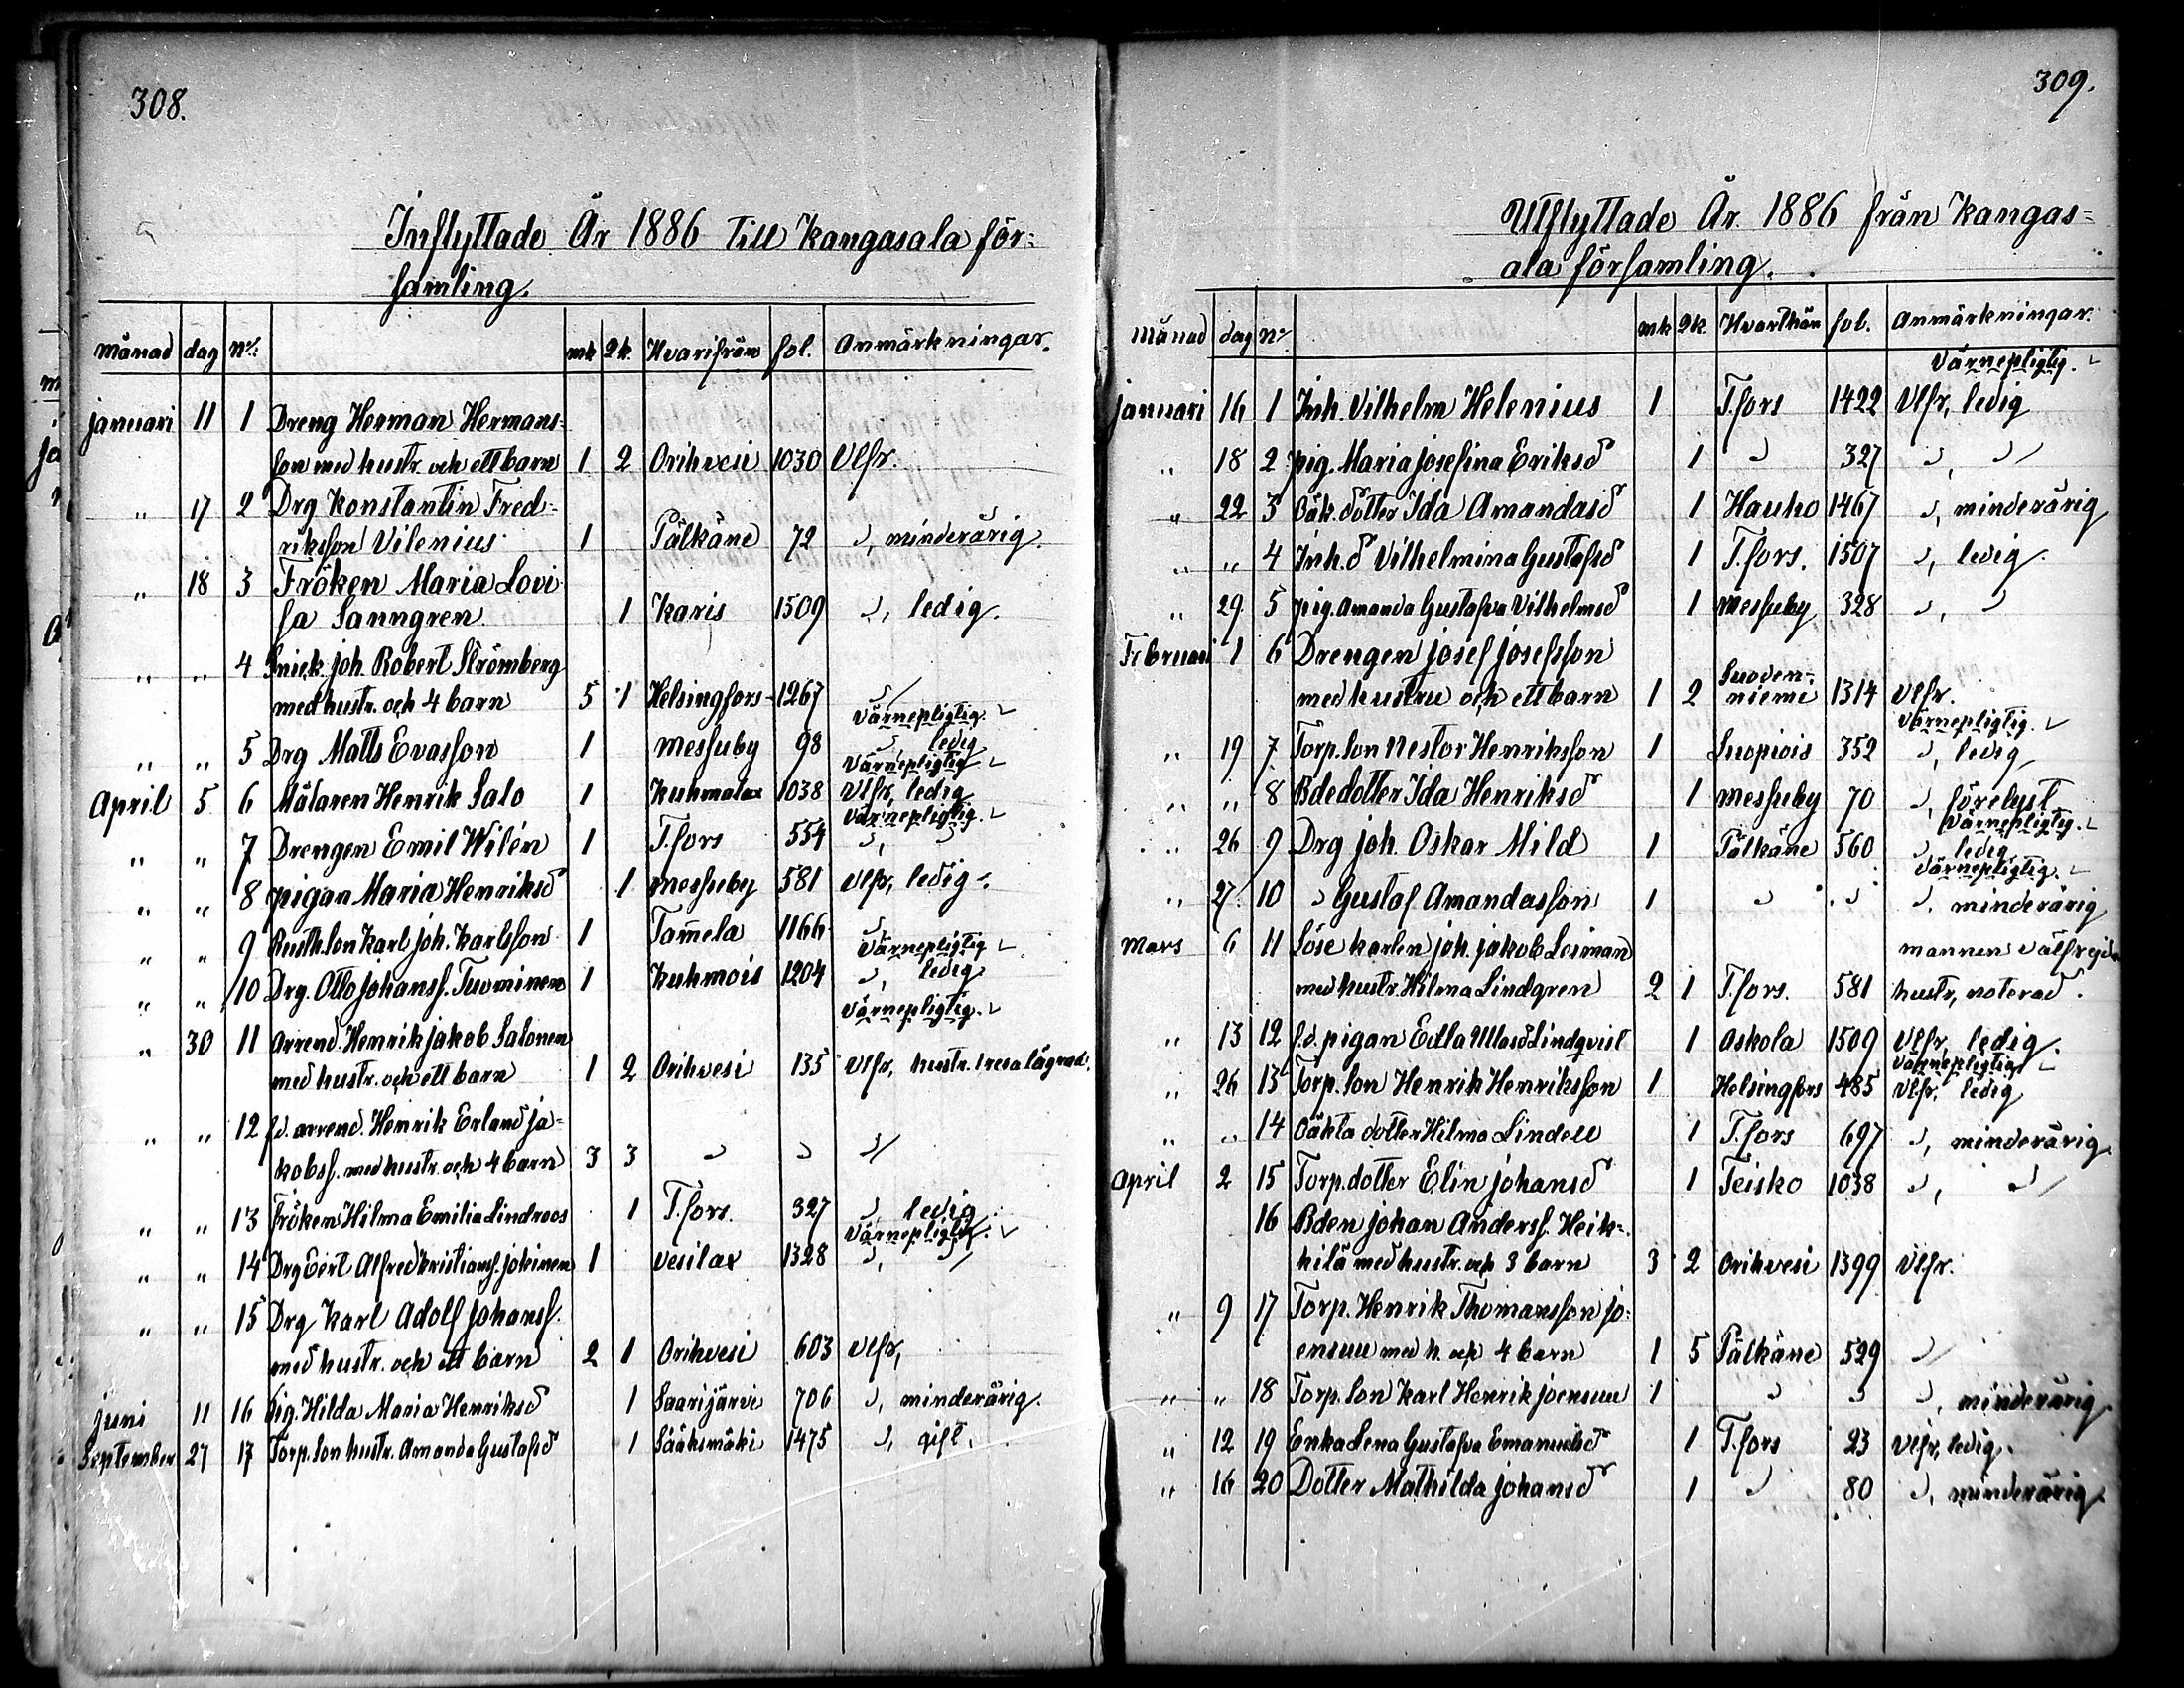 308.
Inflyttade År 1886 till Kangasala för-
samling.
månad dag No: mk qk. Hvarifrån fol. Anmärkningar.
januari 11 1 Dreng Herman Hermans-
son med hustr. och ett barn 1 2 Orihvesi 1030 Vlfr.
" 17 2 Drg Konstantin Fred-
riksson Vilenius 1 Pälkäne 72 ", minderårig.
" 18 3 Fröken Maria Lovi
sa Sanngren 1 Karis 1509 ", ledig.
" " 4 Snick. joh. Robert Strömberg
med hustr. och 4 barn 5 1 Helsingfors 1267 "
Värnepligtig.
" " 5 Drg Matts Evasson 1 messuby 98 ", ledig
Värnepligtig
April 5 6 Målaren Henrik Salo 1 Kuhmalax 1038 Vlfr, ledig
Värnepligtig.
" " 7 Drengen Emil Wilén 1 T.fors 554 ", "
" " 8 pigan Maria Henriksd 1 messuby 581 Vlfr, ledig.
" " 9 Rusth.son Karl joh. Karlsson 1 Tam̄ela 1166 "
Värnepligtig
" " 10 Drg. Otto johanss. Tuominen 1 Kuhmois 1204 ", ledig
Värnepligtig.
" 30 11 arrend. Henrik jakob Salonen
med hustr. och ett barn 1 2 Orihvesi 135 Vlfr, hustr. 1 resa lägrad.
" " 12 f.d. arrend. Henrik Erland ja-
kobss. med hustr. och 4 barn 3 3 " " "
" " 13 Fröken Hilma Emilia Lindroos 1 T.fors. 327 ", ledig
Värnepligtig.
" " 14 Drg Eert Alfred Kristianss. jokinen 1 vesilax 1328 ", "
" " 15 Drg Karl Adolf johanss.
med hustr. och ett barn 2 1 Orihvesi 603 Vlfr,
juni 11 16 pig. Hilda Maria Henriksd 1 Saarijärvi 706 ", minderårig.
September 27 17 Torp.son hustr. Amanda Gustafsd 1 Sääksmäki 1475 ", gift.
309.
Utflyttade År. 1886 från Kangas-
ala församling.
månad dag No. mk qk. Hvarthän fol. Anmärkningar.
Värnepligtig.
januari 16 1 Inh. Vilhelm Helenius 1 T.fors 1422 Vlfr, ledig
" 18 2 pig. Maria josefina Eriksd 1 " 327 ", "
" 22 3 Oäk. dotter Ida Amandasd 1 Hauho 1467 ", minderårig
" " 4 Inh. d Vilhelmina Gustafsd 1 T.fors. 1507 ", ledig.
" 29 5 pig. Amanda Gustafva Vilhelmsd 1 messuby 328 ", "
Februari 1 6 Drengen josef josefsson
med hustru och ett barn 1 2 Suoden-
niemi 1314 Vlfr.
Värnepligtig.
" 19 7 Torp.son Nestor Henriksson 1 Luopiois 352 ", ledig
" " 8 Bdedotter Ida Henriksd 1 messuby 70 ", förelyst
Värnepligtig.
" 26 9 Drg joh. Oskar Mild 1 Pälkäne 560 ", ledig
Värnepligtig.
" 27. 10 " Gustaf Amandasson 1 " " ", minderårig
mars 6 11 Löse karlen joh. jakob Leiman mannen välfrejd
med hustr. Hilma Lindgren 2 1 T.fors. 581 hustr, noterad.
" 13 12 f.d. pigan Edla Ullasd Lindqvist 1 Askola 1509 Vlfr, ledig.
Värnepligtig
" 26 13 Torp.son Henrik Henriksson 1 Helsingfors 485 Vlfr. ledig
" " 14 Oäkta dotter Hilma Lindell 1 T.fors 697 ", minderårig.
April 2 15 Torp.dotter Elin johansd 1 Teisko 1038 ", "
16 Bden johan Anderss. Heik-
kilä med hustr. och 3 barn 3 2 Orihvesi 1399 Vlfr.
" 9 17 Torp. Henrik Thomansson jo-
ensuu med h. och 4 barn 1 5 Pälkäne 529 "
" " 18 Torp.son Karl Henrik joensuu 1 " " ", minderårig.
" 12 19 Enka Lena Gustafva Emanuelsd 1 T.fors 23 Vlfr, ledig.
" 16 20 Dotter Mathilda johansd 1 " 80 ", minderårig.